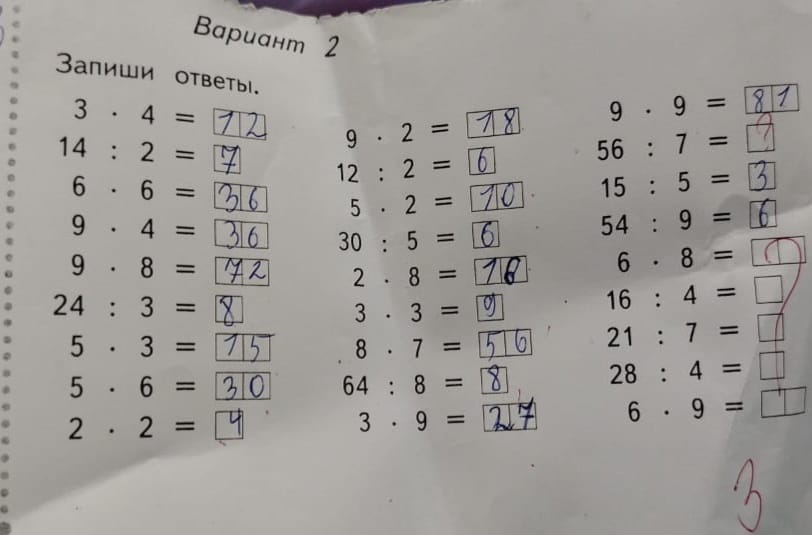 Вариант 2
Запиши ответы.
3 · 4 = 12
14 : 2 = 7
6 · 6 = 36
9 · 4 = 36
9 · 8 = 72
24 : 3 = 8
5 · 3 = 15
5 · 6 = 30
2 · 2 = 4
9 · 2 = 18
12 : 2 = 6
5 · 2 = 10
30 : 5 = 6
2 · 8 = 16
3 · 3 = 9
8 · 7 = 56
64 : 8 = 8
3 · 9 = 27
9 · 9 = 81
56 : 7 = ?
15 : 5 = 3
54 : 9 = 6
6 · 8 = ?
16 : 4 =
21 : 7 =
28 : 4 =
6 · 9 =
3